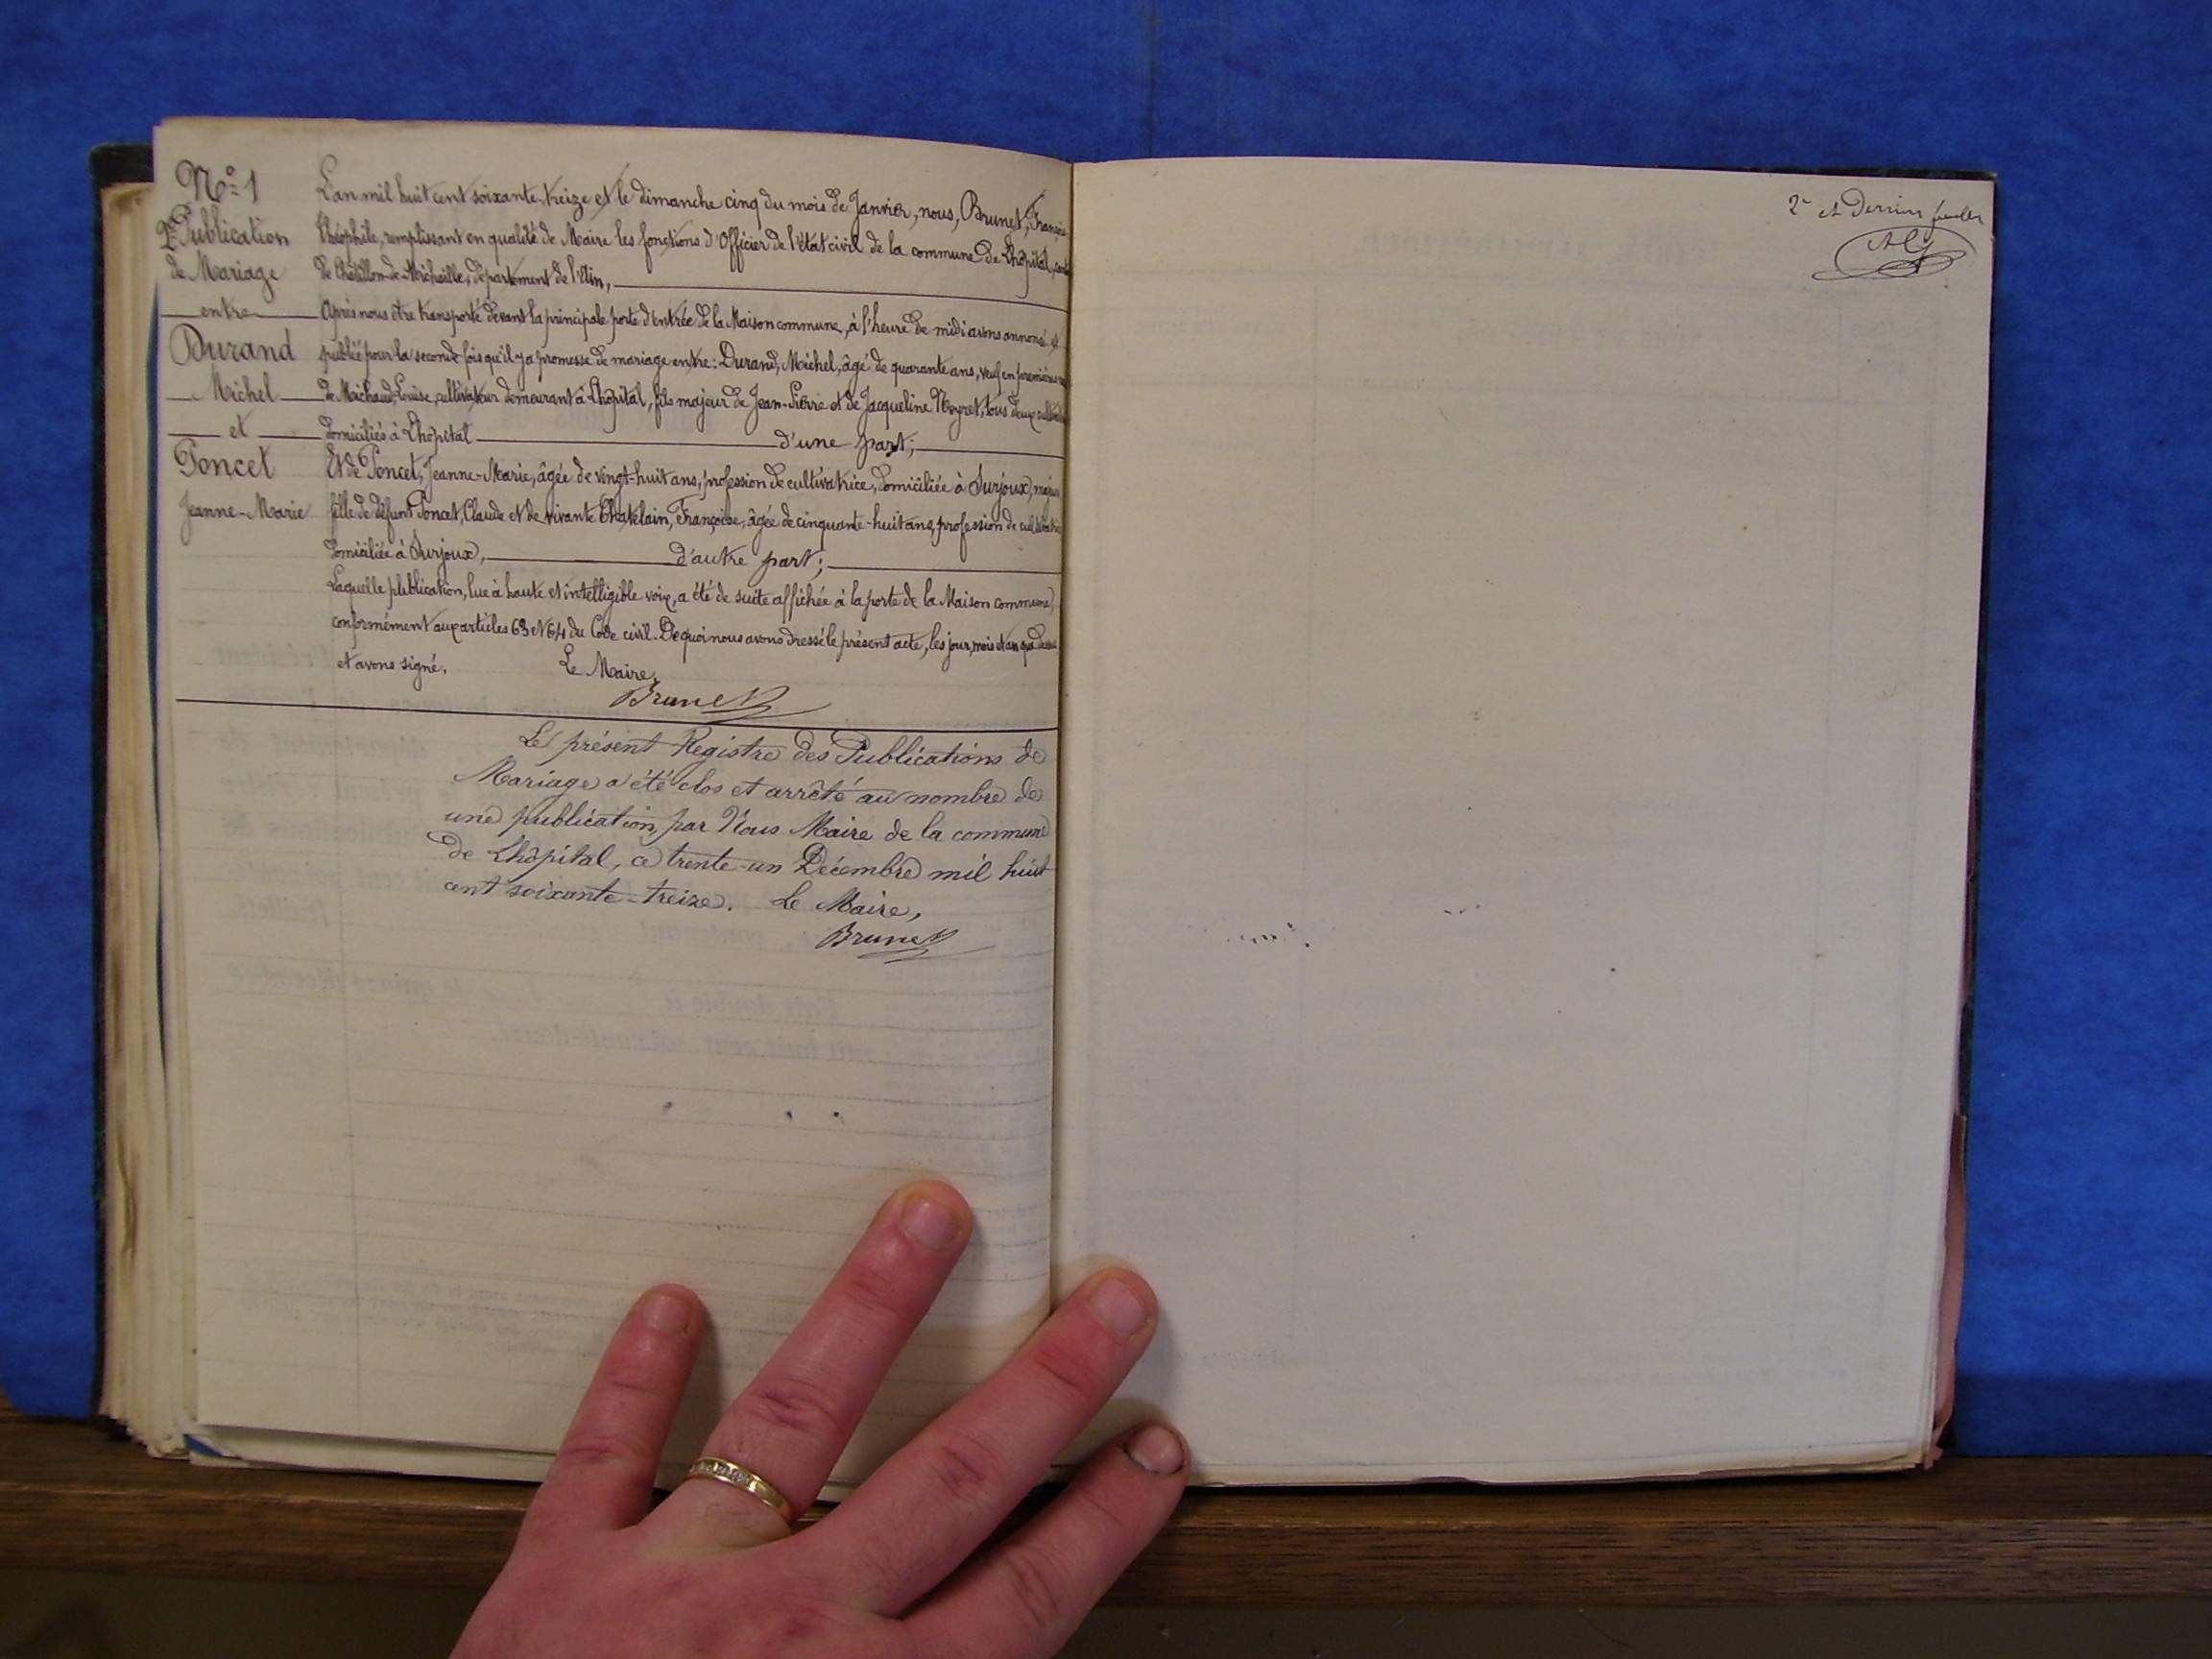 N° 1
2e Publication
de Mariage
entre
Durand
Michel
et
Poncet
Jeanne-Marie
L'an mil huit cent soixante-treize et le dimanche cinq du mois de Janvier, nous, Brunet, François
Théophile, remplissant en qualité de Maire les fonctions d'Officier de l'état civil de la commune de Lhôpital, canton
de Châtillon-de-Michaille, département de l'Ain,
Après nous être transporté devant la principale porte d'entrée de la Maison commune, à l'heure de midi avons annoncé et
publié pour la seconde fois qu'il y a promesse de mariage entre: Durand, Michel, âgé de quarante ans, veuf en premières
de Michaud, Louise, cultivateur demeurant à Lhôpital, fils majeur de Jean-Pierre et de Jacqueline Neyret, tous deux
domiciliés à Lhôpital d'une part;
Et de Poncet, Jeanne-Marie, âgée de vingt-huit ans, profession de cultivatrice, domiciliée à Surjoux, majeure
fille de défunt Poncet, Claude et de vivante Chatelain, Françoise, âgée de cinquante-huit ans, profession de cultivatrice
domiciliée à Surjoux, d'autre part;
Laquelle publication, lue à haute et intelligible voix, a été de suite affichée à la porte de la Maison commune,
conformément aux articles 63 et 64 du Code civil. De quoi nous avons dressé le présent acte, les jour, mois et an que dessus
et avons signé. Le Maire,
Brunet
Le présent Registre des Publications de
Mariage a été clos et arrêté au nombre de
une publication, par Nous Maire de la commune
de Lhôpital, ce trente-un Décembre mil huit
cent soixante-treize. Le Maire,
Brunet
2e et Dernier feuillet